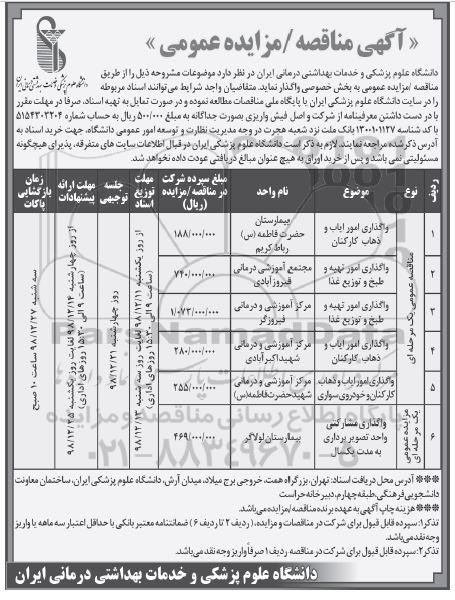 « آگهی مناقصه /مزایده عمومی »
دانشگاه علوم پزشکی و خدمات بهداشتی درمانی ایران در نظر دارد موضوعات مشروحه ذیل را از طریق
مناقصه /مزایده عمومی به بخش خصوصی واگذار نماید. متقاضیان واجد شرایط می‌توانند اسناد مربوطه
را در سایت دانشگاه علوم پزشکی ایران یا پایگاه ملی مناقصات مطالعه نموده و در صورت تمایل به تهیه اسناد، صرفا در مهلت مقرر
با در دست داشتن معرفینامه از شرکت و اصل فیش واریزی بصورت جداگانه به مبلغ ۵۰۰/۰۰۰ ریال به حساب شماره ۵۱۵۴۳۰۳۲۰۴
با کد شناسه ۱۳۰۰۱۰۱۱۲۷ بانک ملت نزد شعبه هجرت در وجه مدیریت نظارت و توسعه امور عمومی دانشگاه، جهت خرید اسناد به
آدرس ذکر شده مراجعه نمایند. لازم به ذکر است دانشگاه علوم پزشکی ایران در قبال اطلاعات سایت های متفرقه، پذیرای هیچگونه
مسئولیتی نمی باشد و پس از خرید اوراق به هیچ عنوان مبالغ دریافتی عودت داده نخواهد شد.
ردیف نوع موضوع نام واحد مبلغ سپرده شرکت در مناقصه /مزایده (ریال) مهلت توزیع اسناد جلسه توجیهی مهلت ارائه پیشنهادات زمان بازگشایی پاکات
۱ واگذاری امور ایاب و ذهاب کارکنان بیمارستان حضرت فاطمه (س) رباط کریم ۱۸۸/۰۰۰/۰۰۰
۲ واگذاری امور تهیه و طبخ و توزیع غذا مجتمع آموزشی درمانی فیروزآبادی ۷۴۰/۰۰۰/۰۰۰
۳ واگذاری امور تهیه و طبخ و توزیع غذا مرکز آموزشی و درمانی فیروزگر ۱/۰۷۳/۰۰۰/۰۰۰
۴ واگذاری امور ایاب و ذهاب کارکنان مرکز آموزشی و درمانی شهید اکبرآبادی ۲۸۰/۰۰۰/۰۰۰
۵ واگذاری امور ایاب و ذهاب کارکنان و خودروی سواری مرکز آموزشی و درمانی شهید حضرت فاطمه (س) ۲۵۵/۰۰۰/۰۰۰
۶ واگذاری مشارکتی واحد تصویر برداری به مدت یکسال بیمارستان لولاگر ۴۶۹/۰۰۰/۰۰۰
مناقصه عمومی یک مرحله ای
مزایده عمومی یک مرحله ای
از روز یکشنبه ۹۸/۱۲/۱۱ لغایت روز سه شنبه ۹۸/۱۲/۱۳ (ساعت ۹ الی ۱۵:۳۰ روزهای اداری)
روز چهارشنبه ۹۸/۱۲/۲۱
از روز چهارشنبه ۹۸/۱۲/۱۴ لغایت روز یکشنبه ۹۸/۱۲/۲۵ (ساعت ۹ الی ۱۵:۳۰ روزهای اداری)
سه شنبه ۹۸/۱۲/۲۷ ساعت ۱۰ صبح
*** آدرس محل دریافت اسناد: تهران، بزرگراه همت، خروجی برج میلاد، میدان آرش، دانشگاه علوم پزشکی ایران، ساختمان معاونت
دانشجویی فرهنگی، طبقه چهارم، دبیرخانه حراست
*** هزینه چاپ آگهی به عهده برنده مناقصه /مزایده می‌باشد.
تذکر۱: سپرده قابل قبول برای شرکت در مناقصات و مزایده، (ردیف ۲ تا ردیف ۶) ضمانتنامه معتبر بانکی با حداقل اعتبار سه ماهه یا واریز
وجه نقد می‌باشد.
تذکر۲: سپرده قابل قبول برای شرکت در مناقصه ردیف ۱ صرفاً واریز وجه نقد می باشد.
دانشگاه علوم پزشکی و خدمات بهداشتی درمانی ایران
پایگاه اطلاع رسانی مناقصات و مزایدات
۰۲۱-۸۸۳۴۹۶۷۰-۵